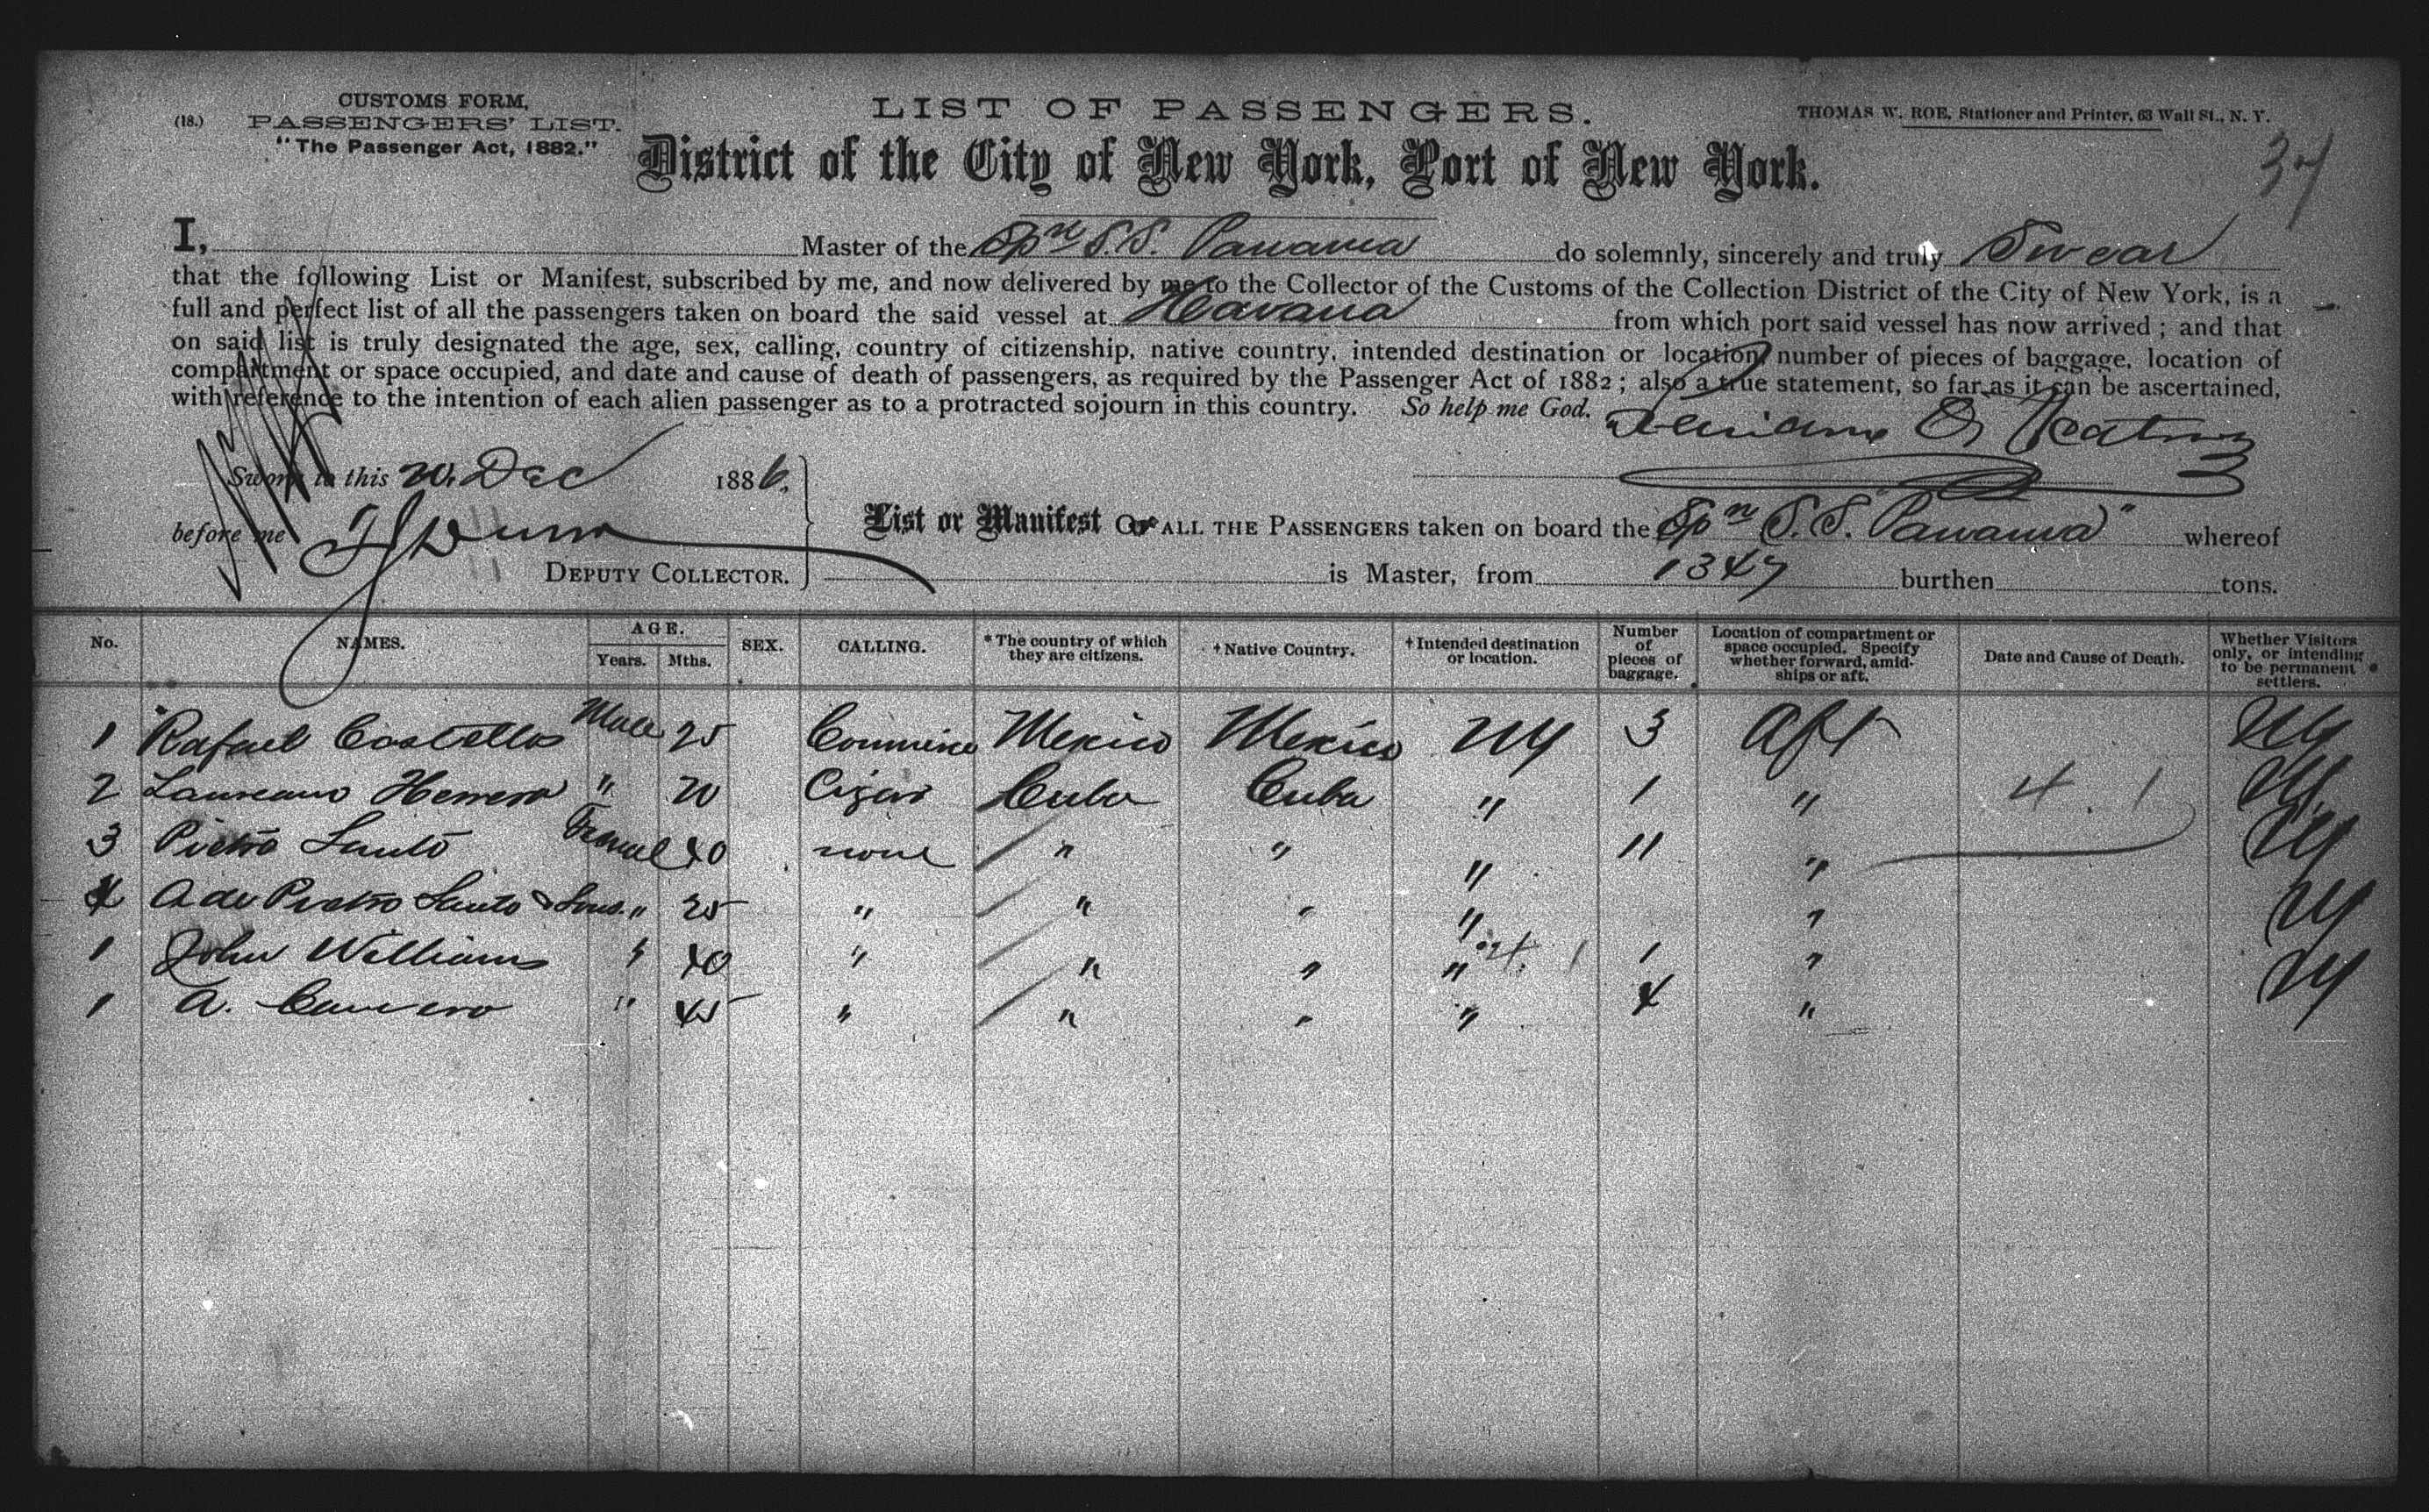 CUSTOMS FORM,
(18.) PASSENGERS' LIST.
"The Passenger Act, 1882."
LIST OF PASSENGERS.
THOMAS W. ROE, Stationer and Printer, 63 Wall St., N. Y.
37
District of the City of New York, Port of New York.
I, Master of the Spn S.S. Panama do solemnly, sincerely and truly Swear
that the following List or Manifest, subscribed by me, and now delivered by me to the Collector of the Customs of the Collection District of the City of New York, is a
full and perfect list of all the passengers taken on board the said vessel at Havana from which port said vessel has now arrived; and that
on said list is truly designated the age, sex, calling, country of citizenship, native country, intended destination or location, number of pieces of baggage, location of
compartment or space occupied, and date and cause of death of passengers, as required by the Passenger Act of 1882; also a true statement, so far as it can be ascertained,
with reference to the intention of each alien passenger as to a protracted sojourn in this country. So help me God.
Sworn to this 20. Dec 1886.
before me
DEPUTY COLLECTOR.
List or Manifest OF ALL THE PASSENGERS taken on board the Spn S.S. "Panama" whereof
is Master, from 1347 burthen tons.
No. NAMES. AGE. Years. Mths. SEX. CALLING. *The country of which they are citizens. †Native Country. †Intended destination or location. Number of pieces of baggage. Location of compartment or space occupied. Specify whether forward, amidships or aft. Date and Cause of Death. Whether Visitors only, or intending to be permanent settlers.
1 Rafael Costello Male 25 Mexico Mexico NY 3 Aft NY
2 Laureano Herrera " 20 Cigar Cuba Cuba " 1 " 4. 1 NY
3 Pietro Santo Female 40 none " " " 11 " NY
4 A de Pietro Santo & " 25 " " " " " NY
1 John Williams " 40 " " " " 1 " NY
1 A. " 45 " " " " 4 "